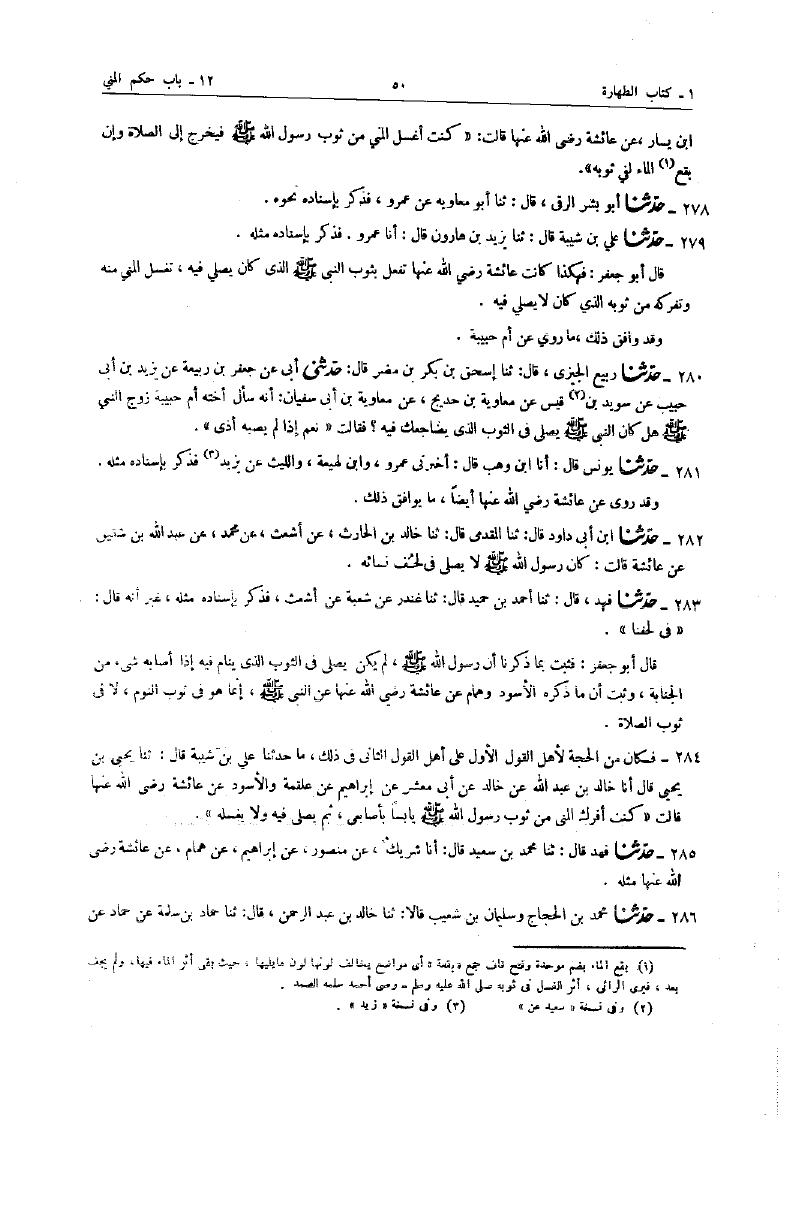 ١ ـ كتاب الطهارة ٥٠ ١٢ ـ باب حكم المني
ابن يسار ، عن عائشة رضى الله عنها قالت: « كنت أغسل المني من ثوب رسول الله ﷺ فيخرج إلى الصلاة وإن
بقع (١) الماء لفي ثوبه».
٢٧٨ ـ حدثنا أبو بشر الرقى ، قال : ثنا أبو معاوية عن عمرو ، فذكر بإسناده نحوه .
٢٧٩ ـ حدثنا علي بن شيبة قال : ثنا يزيد بن هارون قال : أنا عمرو . فذكر بإسناده مثله .
قال أبو جعفر : فهكذا كانت عائشة رضي الله عنها تفعل بثوب النبي ﷺ الذى كان يصلي فيه ، تغسل المني منه
وتفركه من ثوبه الذي كان لا يصلي فيه .
وقد وافق ذلك ، ما روي عن أم حبيبة .
٢٨٠ ـ حدثنا ربيع الجيزى ، قال: ثنا إسحق بن بكر بن مضر قال: حدثني أبى عن جعفر بن ربيعة عن يزيد بن أبى
حبيب عن سويد بن (٢) قيس عن معاوية بن حديج ، عن معاوية بن أبى سفيان: أنه سأل أخته أم حبيبة زوج النبي
ﷺ هل كان النبي ﷺ يصلى فى الثوب الذى يضاجعك فيه ؟ فقالت « نعم إذا لم يصبه أذى » .
٢٨١ ـ حدثنا يونس قال : أنا ابن وهب قال : أخبرنى عمرو ، وابن لهيعة ، والليث عن يزيد (٣) فذكر بإسناده مثله .
وقد روى عن عائشة رضي الله عنها أيضاً ، ما يوافق ذلك .
٢٨٢ ـ حدثنا ابن أبى داود قال: ثنا المقدمى قال: ثنا خالد بن الحارث ، عن أشعث ، عن محمد ، عن عبد الله بن شقيق
عن عائشة قالت : كان رسول الله ﷺ لا يصلى فى لحف نسائه .
٢٨٣ ـ حدثنا فهد ، قال : ثنا أحمد بن حميد قال: ثنا غندر عن شعبة عن أشعث ، فذكر بإسناده مثله ، غير أنه قال :
« فى لحفنا » .
قال أبو جعفر : فثبت بما ذكرنا أن رسول الله ﷺ ، لم يكن يصلى فى الثوب الذى ينام فيه إذا أصابه شىء من
الجنابة ، وثبت أن ما ذكره الأسود وهمام عن عائشة رضى الله عنها عن النبي ﷺ ، إنما هو فى ثوب النوم ، لا فى
ثوب الصلاة .
٢٨٤ ـ فكان من الحجة لأهل القول الأول على أهل القول الثانى فى ذلك ، ما حدثنا علي بن شيبة قال : ثنا يحيى بن
يحيى قال أنا خالد بن عبد الله عن خالد عن أبى معشر عن إبراهيم عن علقمة والأسود عن عائشة رضى الله عنها
قالت « كنت أفرك المنى من ثوب رسول الله ﷺ يابساً بأصابعى ، ثم يصلى فيه ولا يغسله » .
٢٨٥ ـ حدثنا فهد قال : ثنا محمد بن سعيد قال: أنا شريك ، عن منصور ، عن إبراهيم ، عن همام ، عن عائشة رضى
الله عنها مثله .
٢٨٦ ـ حدثنا محمد بن الحجاج وسليمان بن شعيب قالا: ثنا خالد بن عبد الرحمن ، قال: ثنا حماد بن سلمة عن حماد عن
(١) بقع الماء بضم موحدة وفتح قاف جمع « بقعة » أى مواضع يخالف لونها لون ما يليها ، حيث بقى أثر الماء فيها، ولم يجف
بعد ، فيرى الرائى ، أثر الغسل فى ثوبه صلى الله عليه وسلم ـ وصى أحمد سلمه الصمد .
(٢) وفى نسخة « سعيد عن » (٣) وفى نسخة « زيد » .